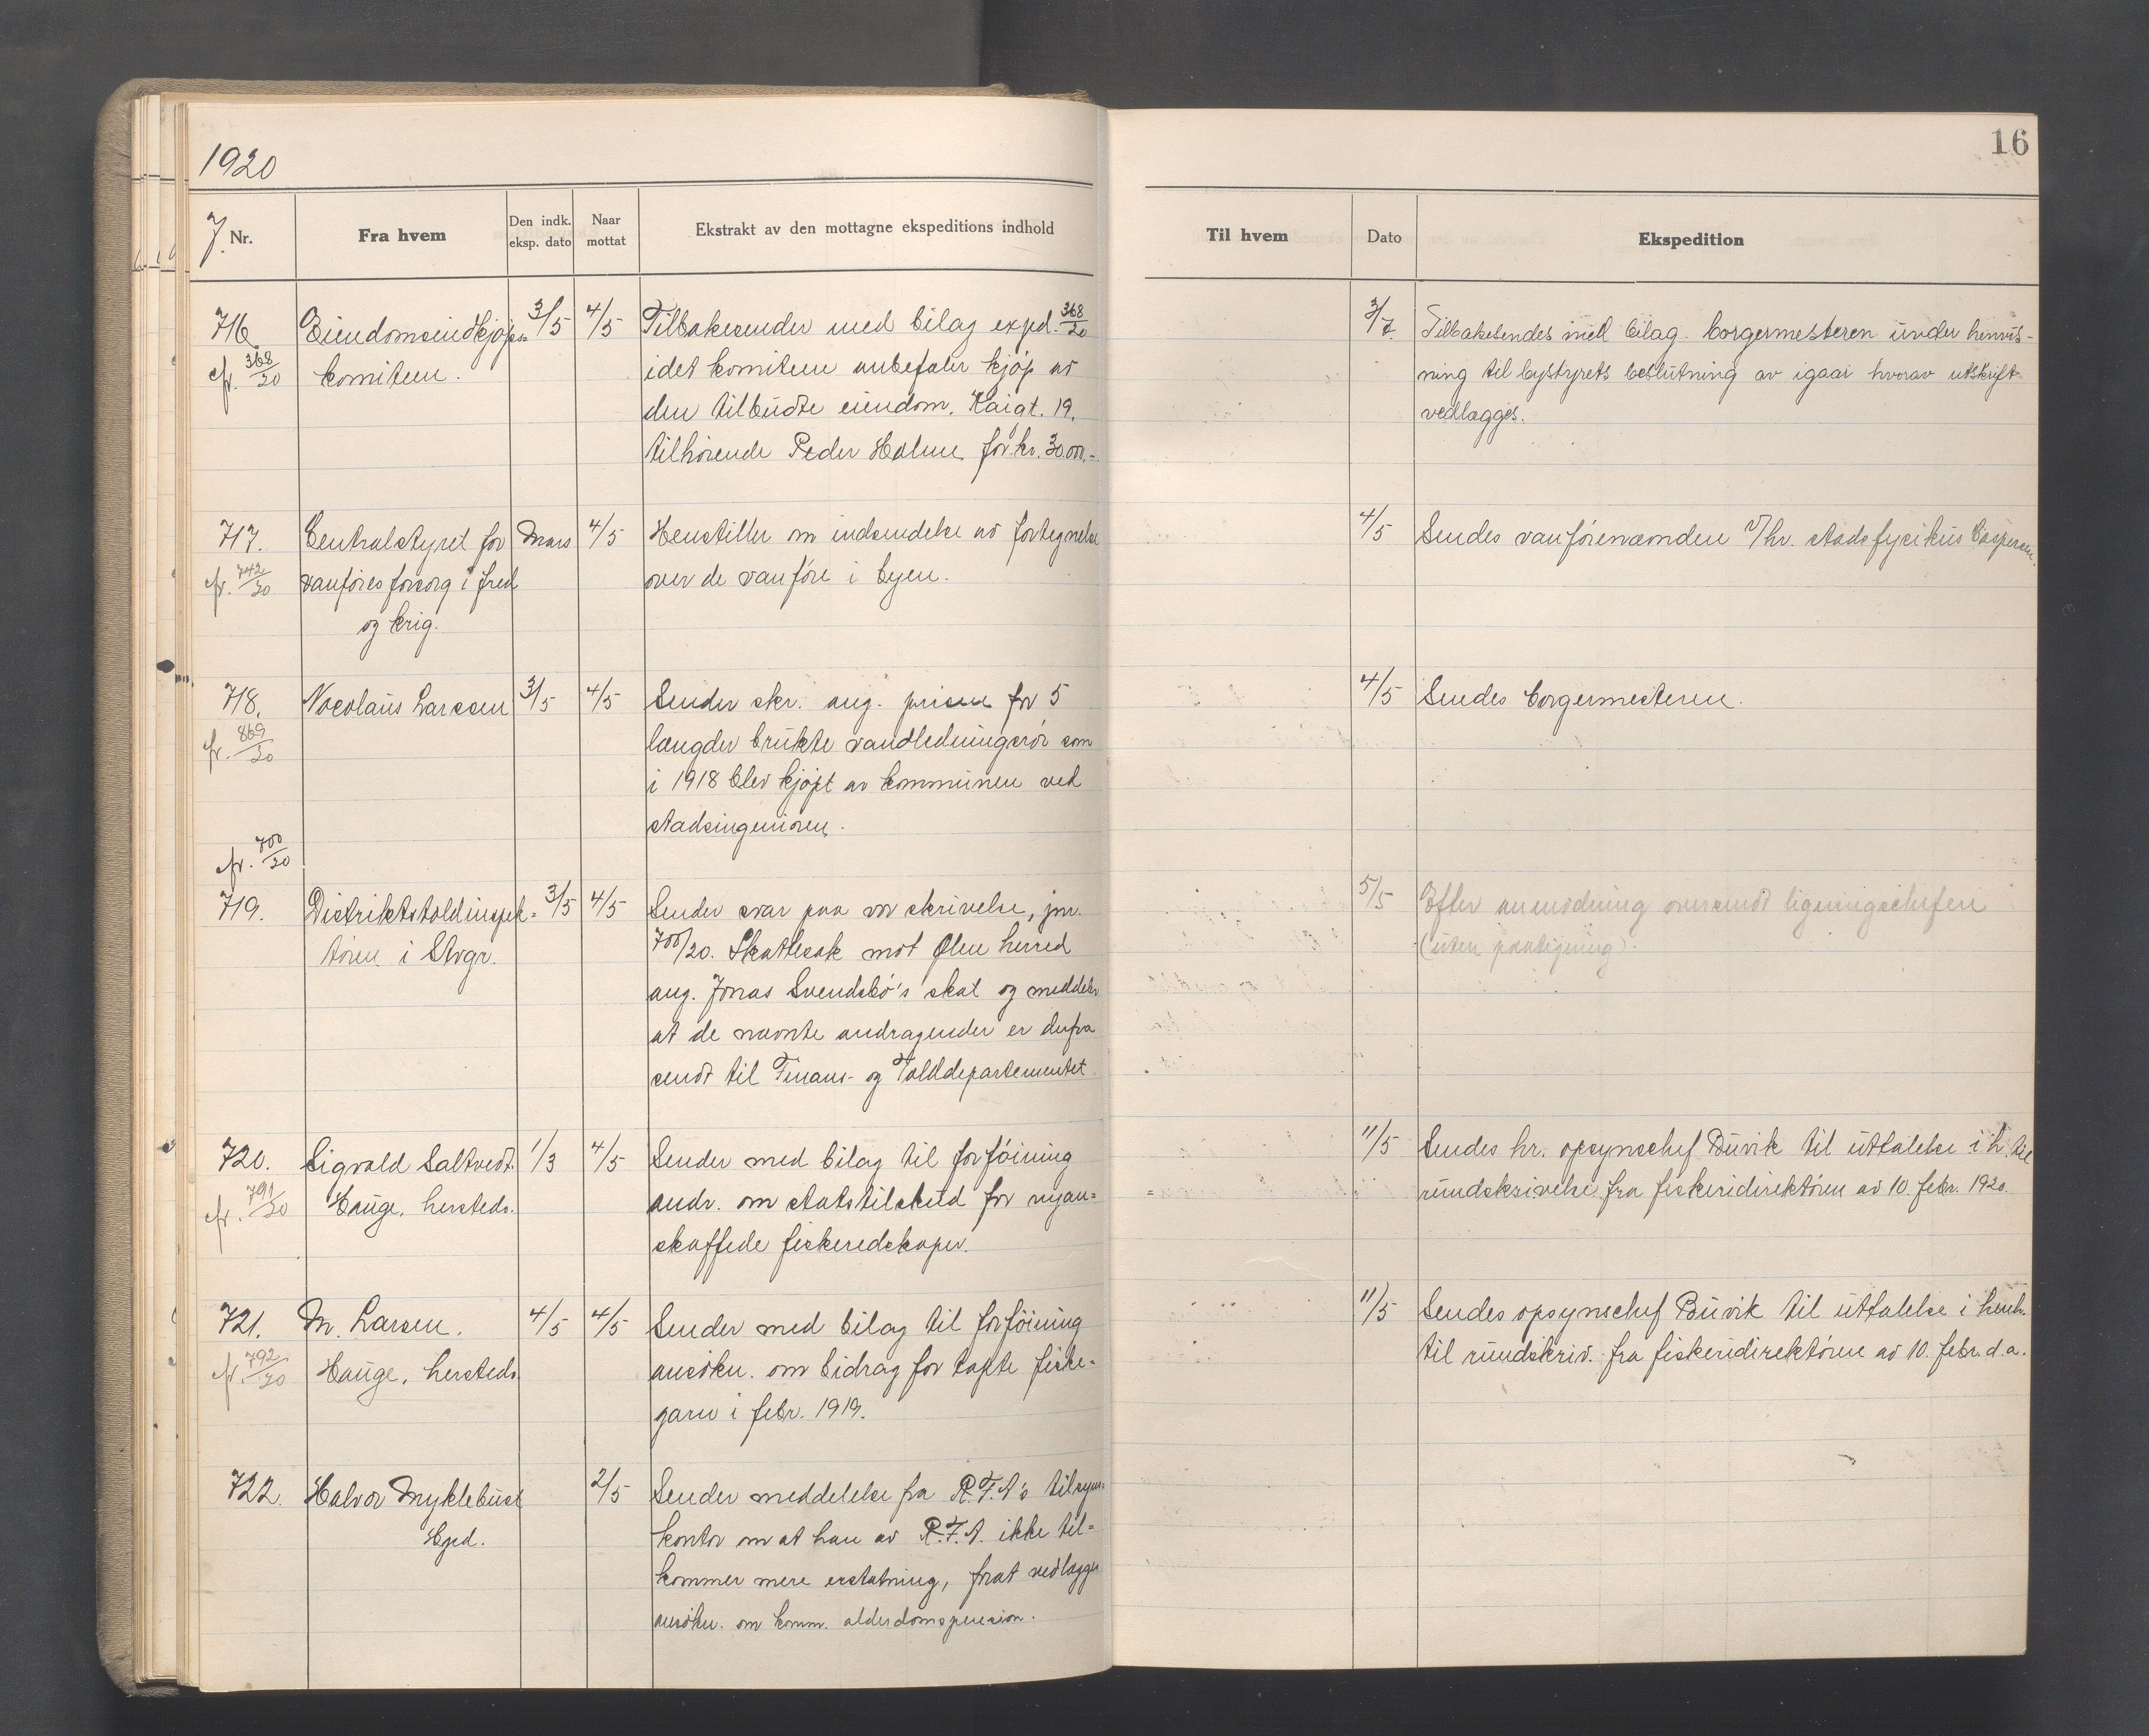 1920
16
J. Nr.
Fra hvem
Den indk. eksp. dato
Naar mottat
Ekstrakt av den mottagne ekspeditions indhold
Til hvem
Dato
Ekspedition
716.
cfr. 368/20
Eiendomsindkjøps-
komiteen.
3/5
4/5
Tilbakesender med bilag exped. 368/20
idet komiteen anbefaler kjøp av
den tilbudte eiendom, Kaigt. 19,
tilhørende Peder Holme for kr. 30.000,-
3/7.
Tilbakesendes med bilag borgermesteren under henvis-
ning til bystyrets beslutning av igaar hvorav utskrift
vedlægges.
717.
cfr. 742/20
Centralstyret for
vanføres forsorg i fred
og krig.
Mars
4/5
Henstiller om indsendelse av fortegnelse
over de vanføre i byen.
4/5
Sendes vanførenævnden v/hr. stadsfysikus Caspersen.
718.
cfr. 869/20
Nocolaus Larssen
3/5
4/5
Sender skr. ang. prisen for 5
længder brukte vandledningsrør som
i 1918 blev kjøpt av kommunen ved
stadsingeniøren.
4/5
Sendes borgermesteren.
cfr. 700/20
719.
Distriktstoldinspek-
tøren i Stvgr.
3/5
4/5
Sender svar paa vor skrivelse, jnr.
700/20. Skattesak mot Ølen herred
ang. Jonas Svendsbø's skat og meddeler
at de nævnte andragender er derfra
sendt til Finans- og Tolldepartementet.
5/5
Efter anmodning oversendt ligningschefen
(uten paategning).
720.
cfr. 791/20
Sigvald Saltvedt.
Hauge, hersteds.
1/3
4/5
Sender med bilag til forføining
andr. om statstilskud for nyan=
skaffede fiskeredskaper.
11/5
Sendes hr. opsynschef Buvik til uttalelse i h. til
rundskrivelse fra fiskeridirektøren av 10. febr. 1920.
721.
cfr. 792/20
M. Larsen.
Hauge, hersteds
4/5
4/5
Sender med bilag til forføining
ansøkn. om bidrag for tapte fiske-
garn i febr. 1919.
11/5
Sendes opsynschef Buvik til uttalelse i henh.
til rundskriv. fra fiskeridirektøren av 10. febr. d.a.
722.
Halvor Myklebust
Hgsd.
2/5
Sender meddelelse fra R.F.A's tilsyns-
kontor om at han av R.F.A. ikke til=
kommer mere erstatning, forat vedlægges
ansøkn. om komm. alderdomspension.